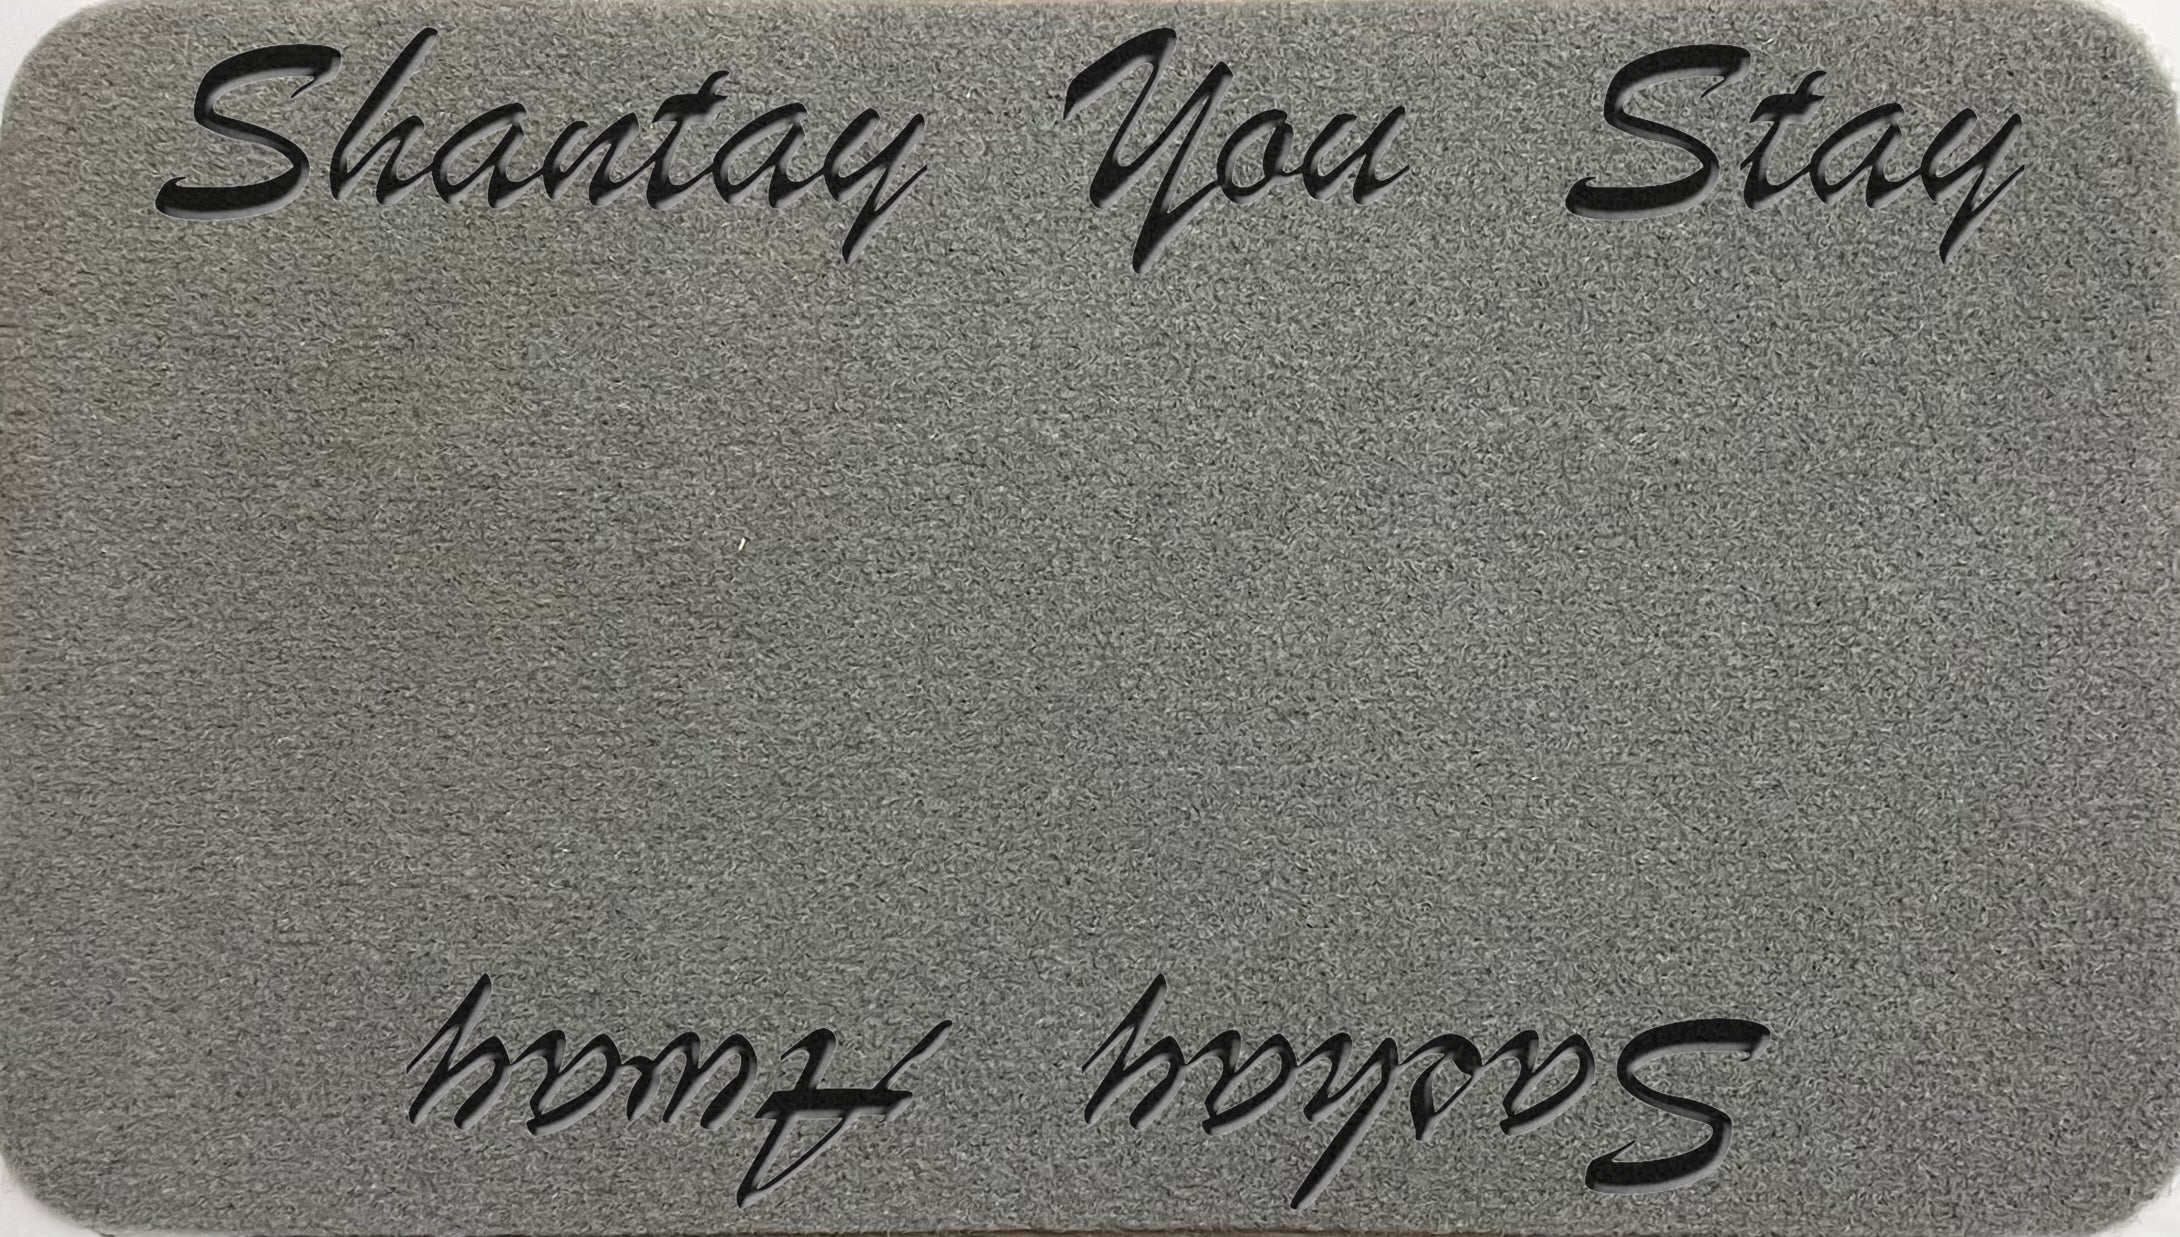 Shantay You Stay
Sashay Away